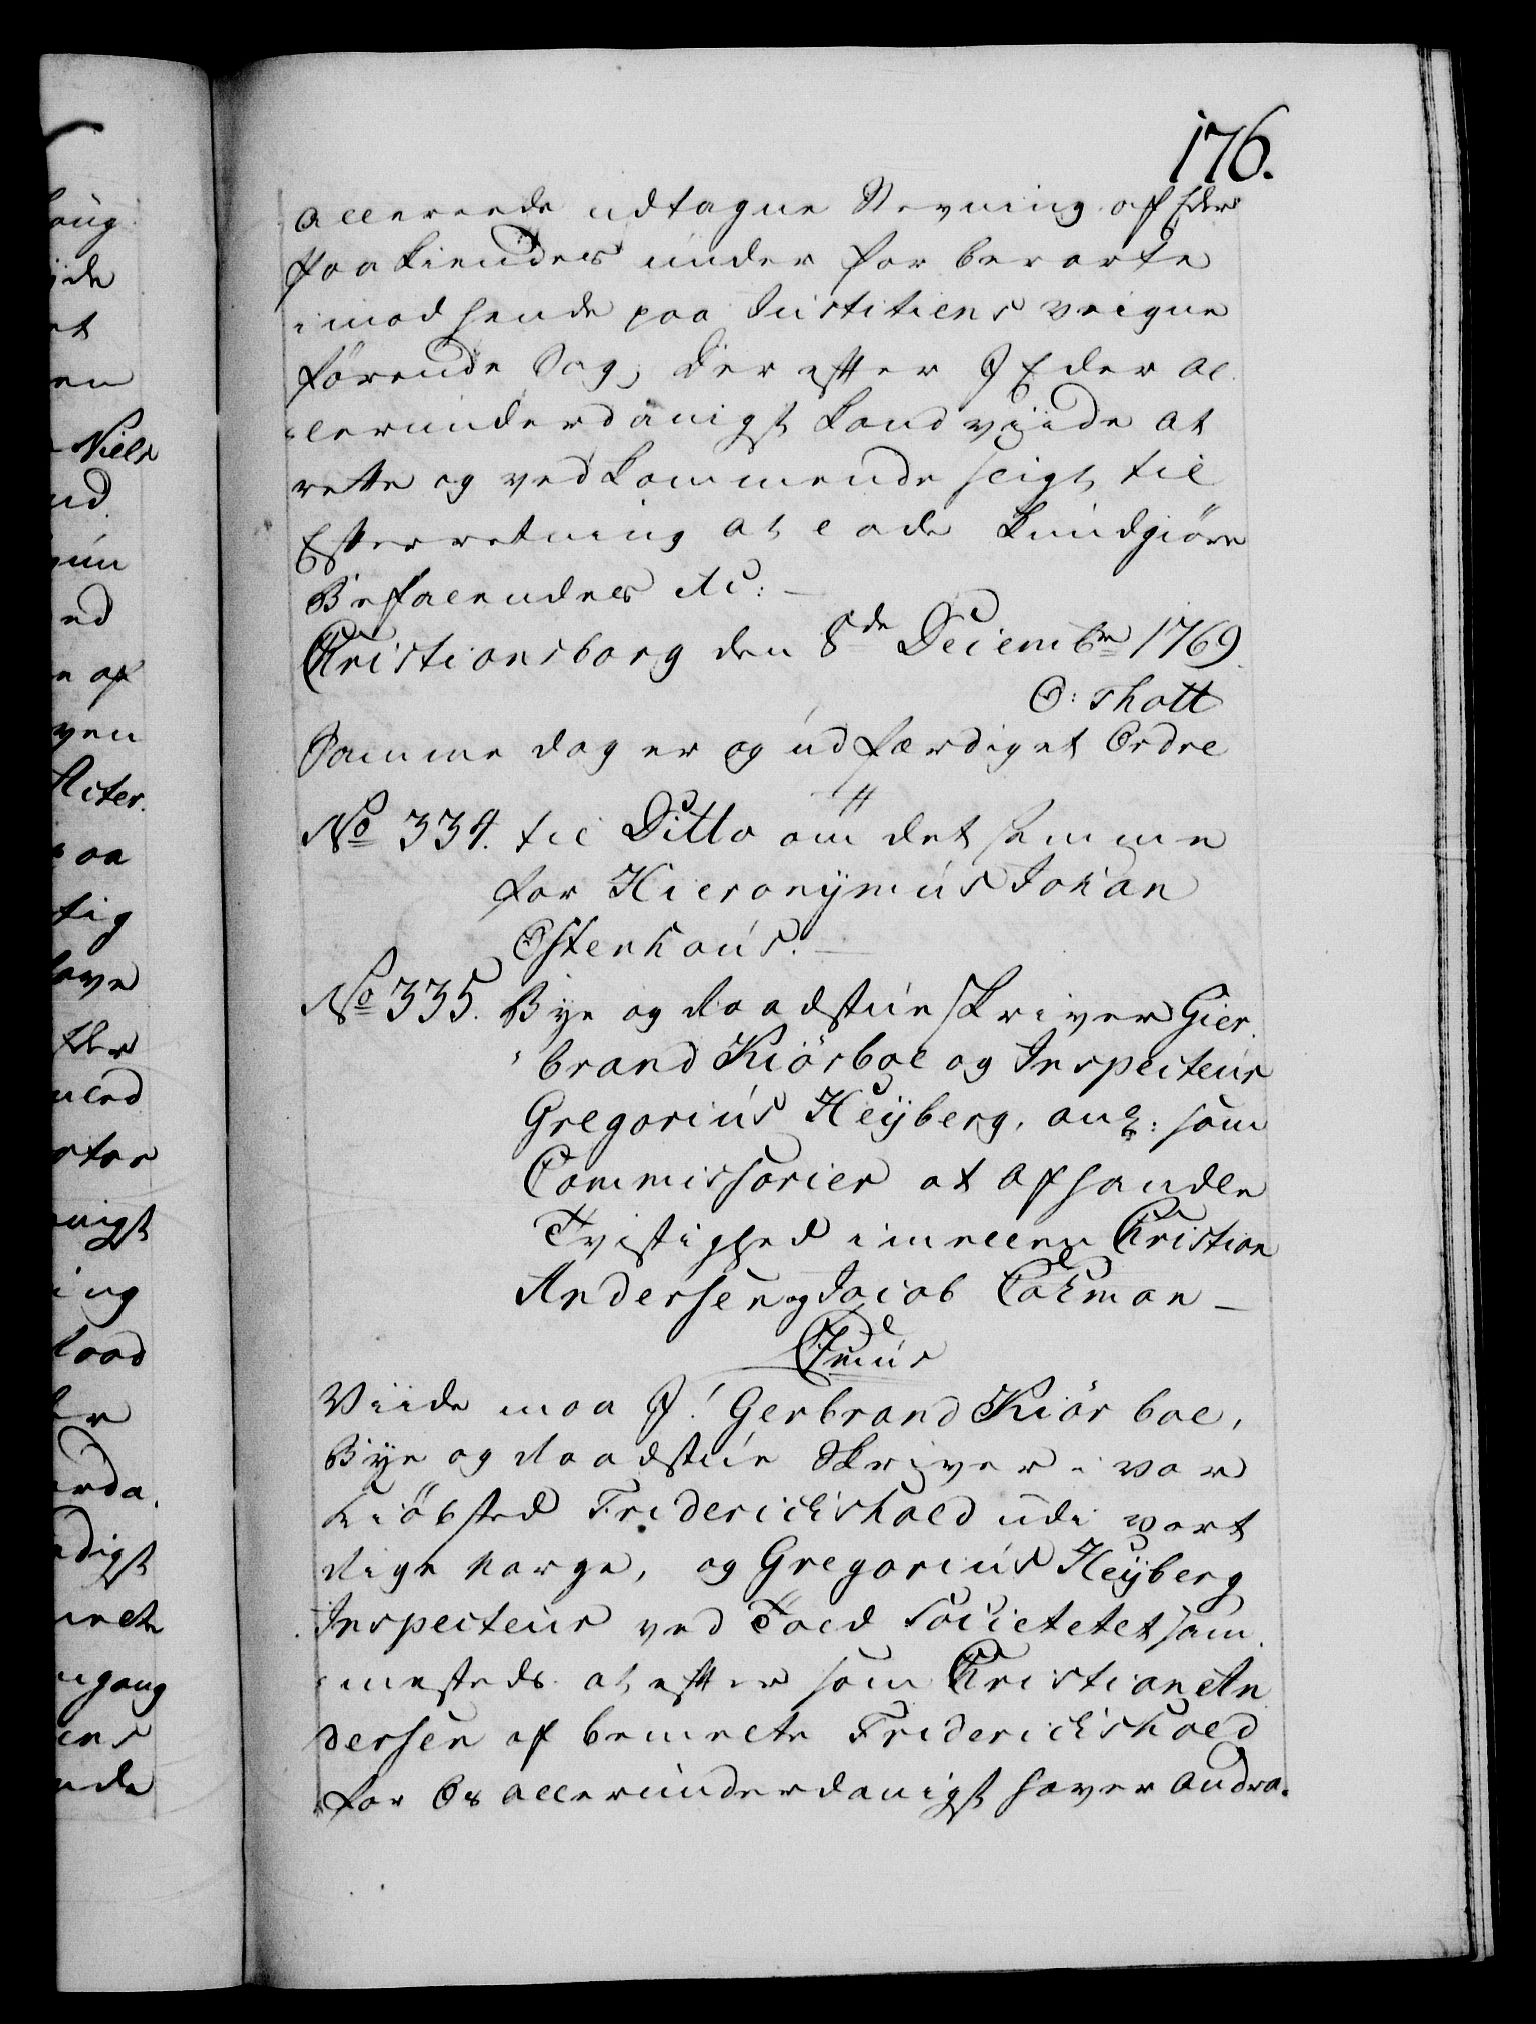 176.
allereede udtagne Stevning af Eder
paakiendes under for berørte
imod hende paa Justitiens veigne
førende Sag, Der efter I Eder al¬
lerunderdanigst kand viide at
rette og vedkommende sligt til
Efterretning at lade kundgiøre
Befalendes etc:
Christiansborg den 8de Decembr 1769
O: Thott
Samme dag er og udfærdiget Ordre
No 334. til Ditto om det samme
for Hieronymus Johan
Ostenhaus.
No 335. Bye og Raadstueskriver Gier¬
brand Kiørboe og Inspecteur
Gregorius Heyberg, ang: som
Commissarier at afhandle
Tvistighed imellem Christian
Andersen og Jacob Cohman
Viide maa I! Gerbrand Kiørboe,
Bye og Raadstue Skriver i vor
Kiøbsted Friderichshald udi vort
Rige Norge, og Gregorius Heyberg
Inspecteur ved Told Societetet sam¬
mesteds. at efter som Christian An
dersen af bemelte Friderichshald
for Os allerunderdanigst haver andra¬
Niels
nd.
ed
e af
Acter.
paa
tig
Eder
ing
Raad